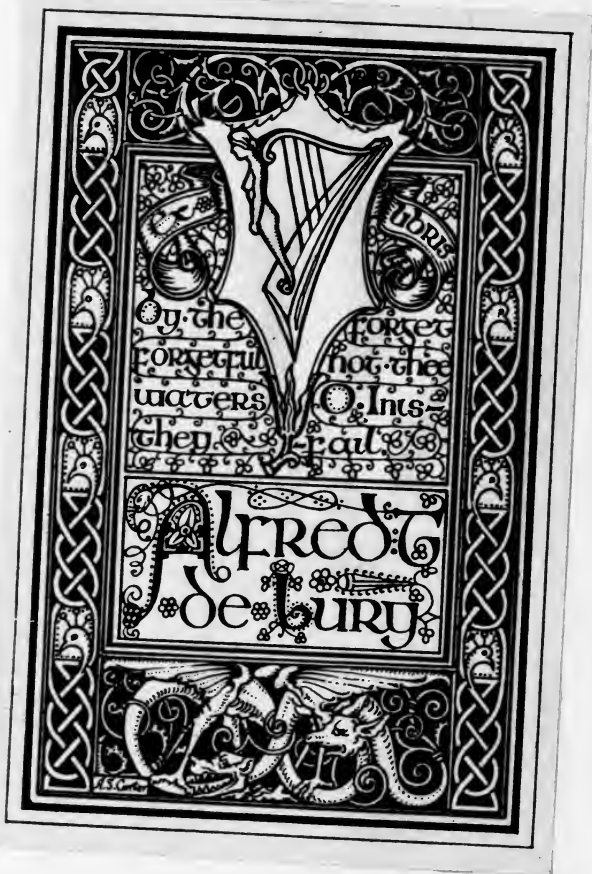 Ex Libris
By·the
forgetful
waters
they.
forget
not·thee
O·Inis-
-fail.
Alfred:T
de Lury
A.S. Carter